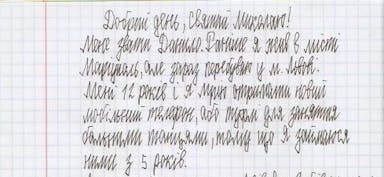 Добрий день, Святий Миколаю!
Мене звати Данило. Раніше я жив в місті
Маріуполь, але зараз перебуваю у м. Львов.
Мені 12 років і я мрію отримати новий
мобільний телефон, або туфлі для заняття
бальними танцями, тому що я займаюся
ними з 5 років.